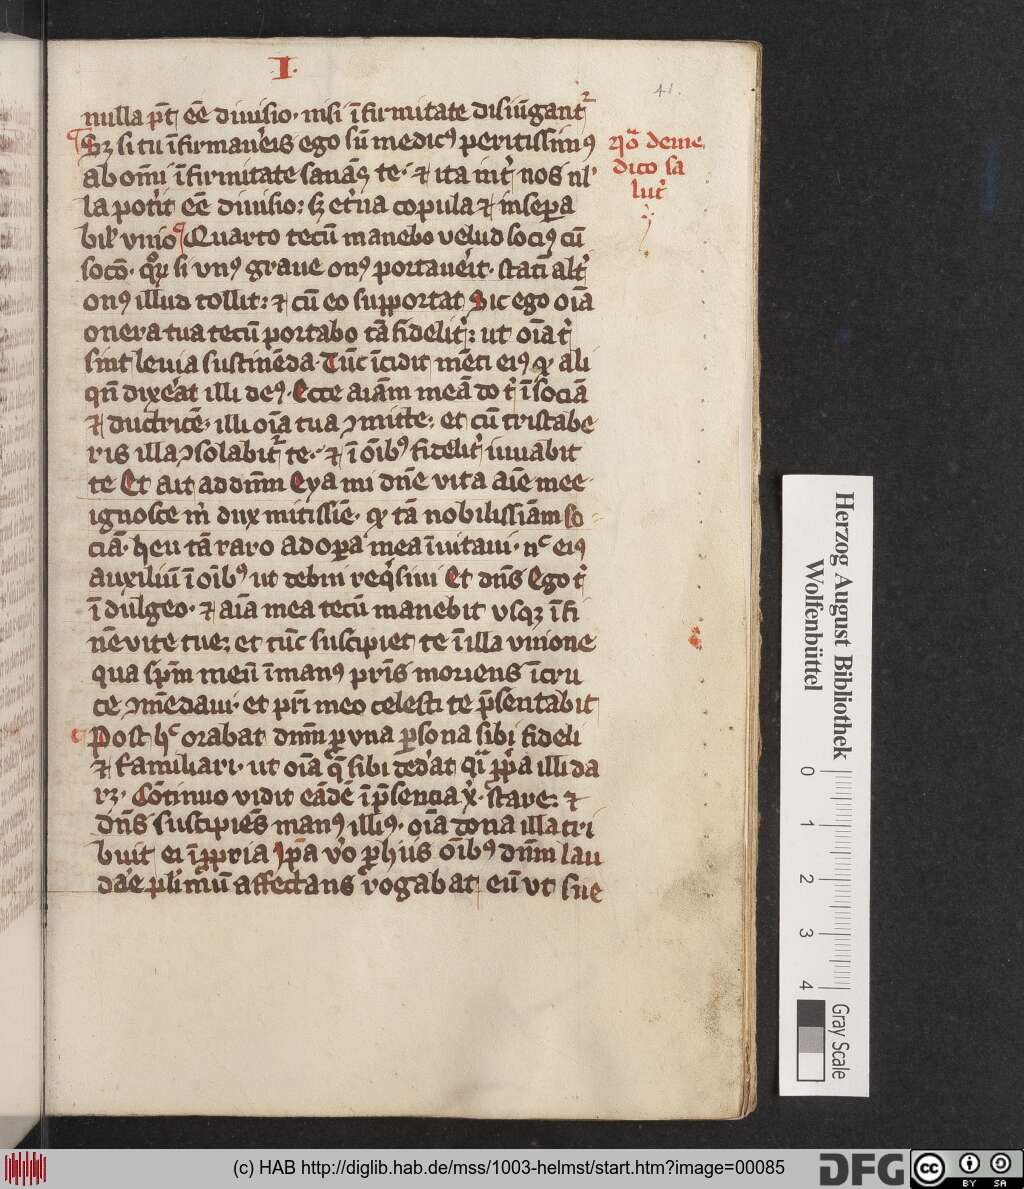 I.
41.
nulla p̄t eē diuisio· nisi ī firmitate disiūgantᷣ
Sꝫ si tu īfirmaueris ego sū medicꝰ peritissimꝰ
ab om̄i īfirmitate sanās te· ⁊ ita int̾ nos nl̾
la pot̾it eē diuisio: sꝫ et̾na copula ⁊ insepa
bil̾ vnio Quarto tecū manebo velud sociꝰ cū
socō· si vnꝰ graue onꝰ portauerit· statī alt̾
onꝰ illud tollit: ⁊ cū eo supportat Sic ego oīa
onera tua tecū portabo tā fidelit̾: ut oīa t̾
sint leuia sustinēda· Tūc īcidit mēti eiꝰ ꝙ ali
qn̄ dixerat illi deꝰ· Ecce aīam meā do t̾ ī sociā
⁊ ductricē· illi oīa tua ꝯmitte: et cū tristabe
ris illa ꝯsolabitᷣ te· ⁊ ī oībꝰ fidelit̾ iuuabit
te Et ait ad dn̄m Eya mi dn̄e vita aīe mee
ignosce m̄ dux mitissīe· ꝙ tā nobilissīam so
ciā· heu tā raro ad opera mea īuitaui· nᶜ eiꝰ
auxiliū ī oībꝰ ut debui reqͥsiui Et dn̄s Ego t̾
īdulgeo· ⁊ aīa mea tecū manebit vsqꝫ ī fi
nē vite tue: et tūc suscipiet te ī illa vnione
qua sp̄m meū ī manꝰ pr̄is moriens ī cru
ce ꝯmēdaui· et pr̄i meo celesti te p̄sentabit
Post hᶜ orabat dn̄m ꝓ vna persona sibi fideli
⁊ familiari· ut oīa q̄ sibi ded̾at qͣi ꝓp̄a illi da
rꝫ· Cōtinuo vidit eādē ī p̄sencia x̄· stare: ⁊
dn̄s suscipiēs manꝰ illiꝰ· oīa dona illa tri
buit ei ī ꝓpria Ip̄a v̾o ꝓ hiis oībꝰ dn̄m lau
dare plimū affectans rogabat eū vt sue
qͦ deme
dico sa
lut̾
Herzog August Bibliothek
Wolfenbüttel
0 1 2 3 4
Gray Scale
(c) HAB http://diglib.hab.de/mss/1003-helmst/start.htm?image=00085
DFG
cc BY SA